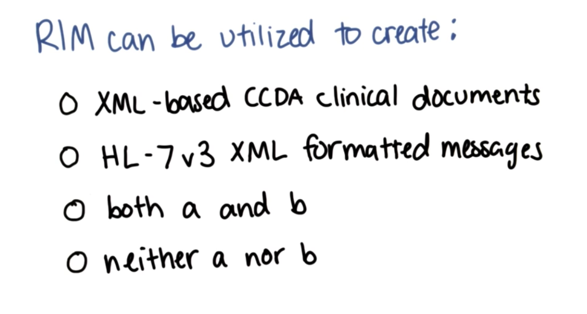 RIM can be utilized to create:
XML-based CCDA clinical documents
HL-7v3 XML formatted messages
both a and b
neither a nor b